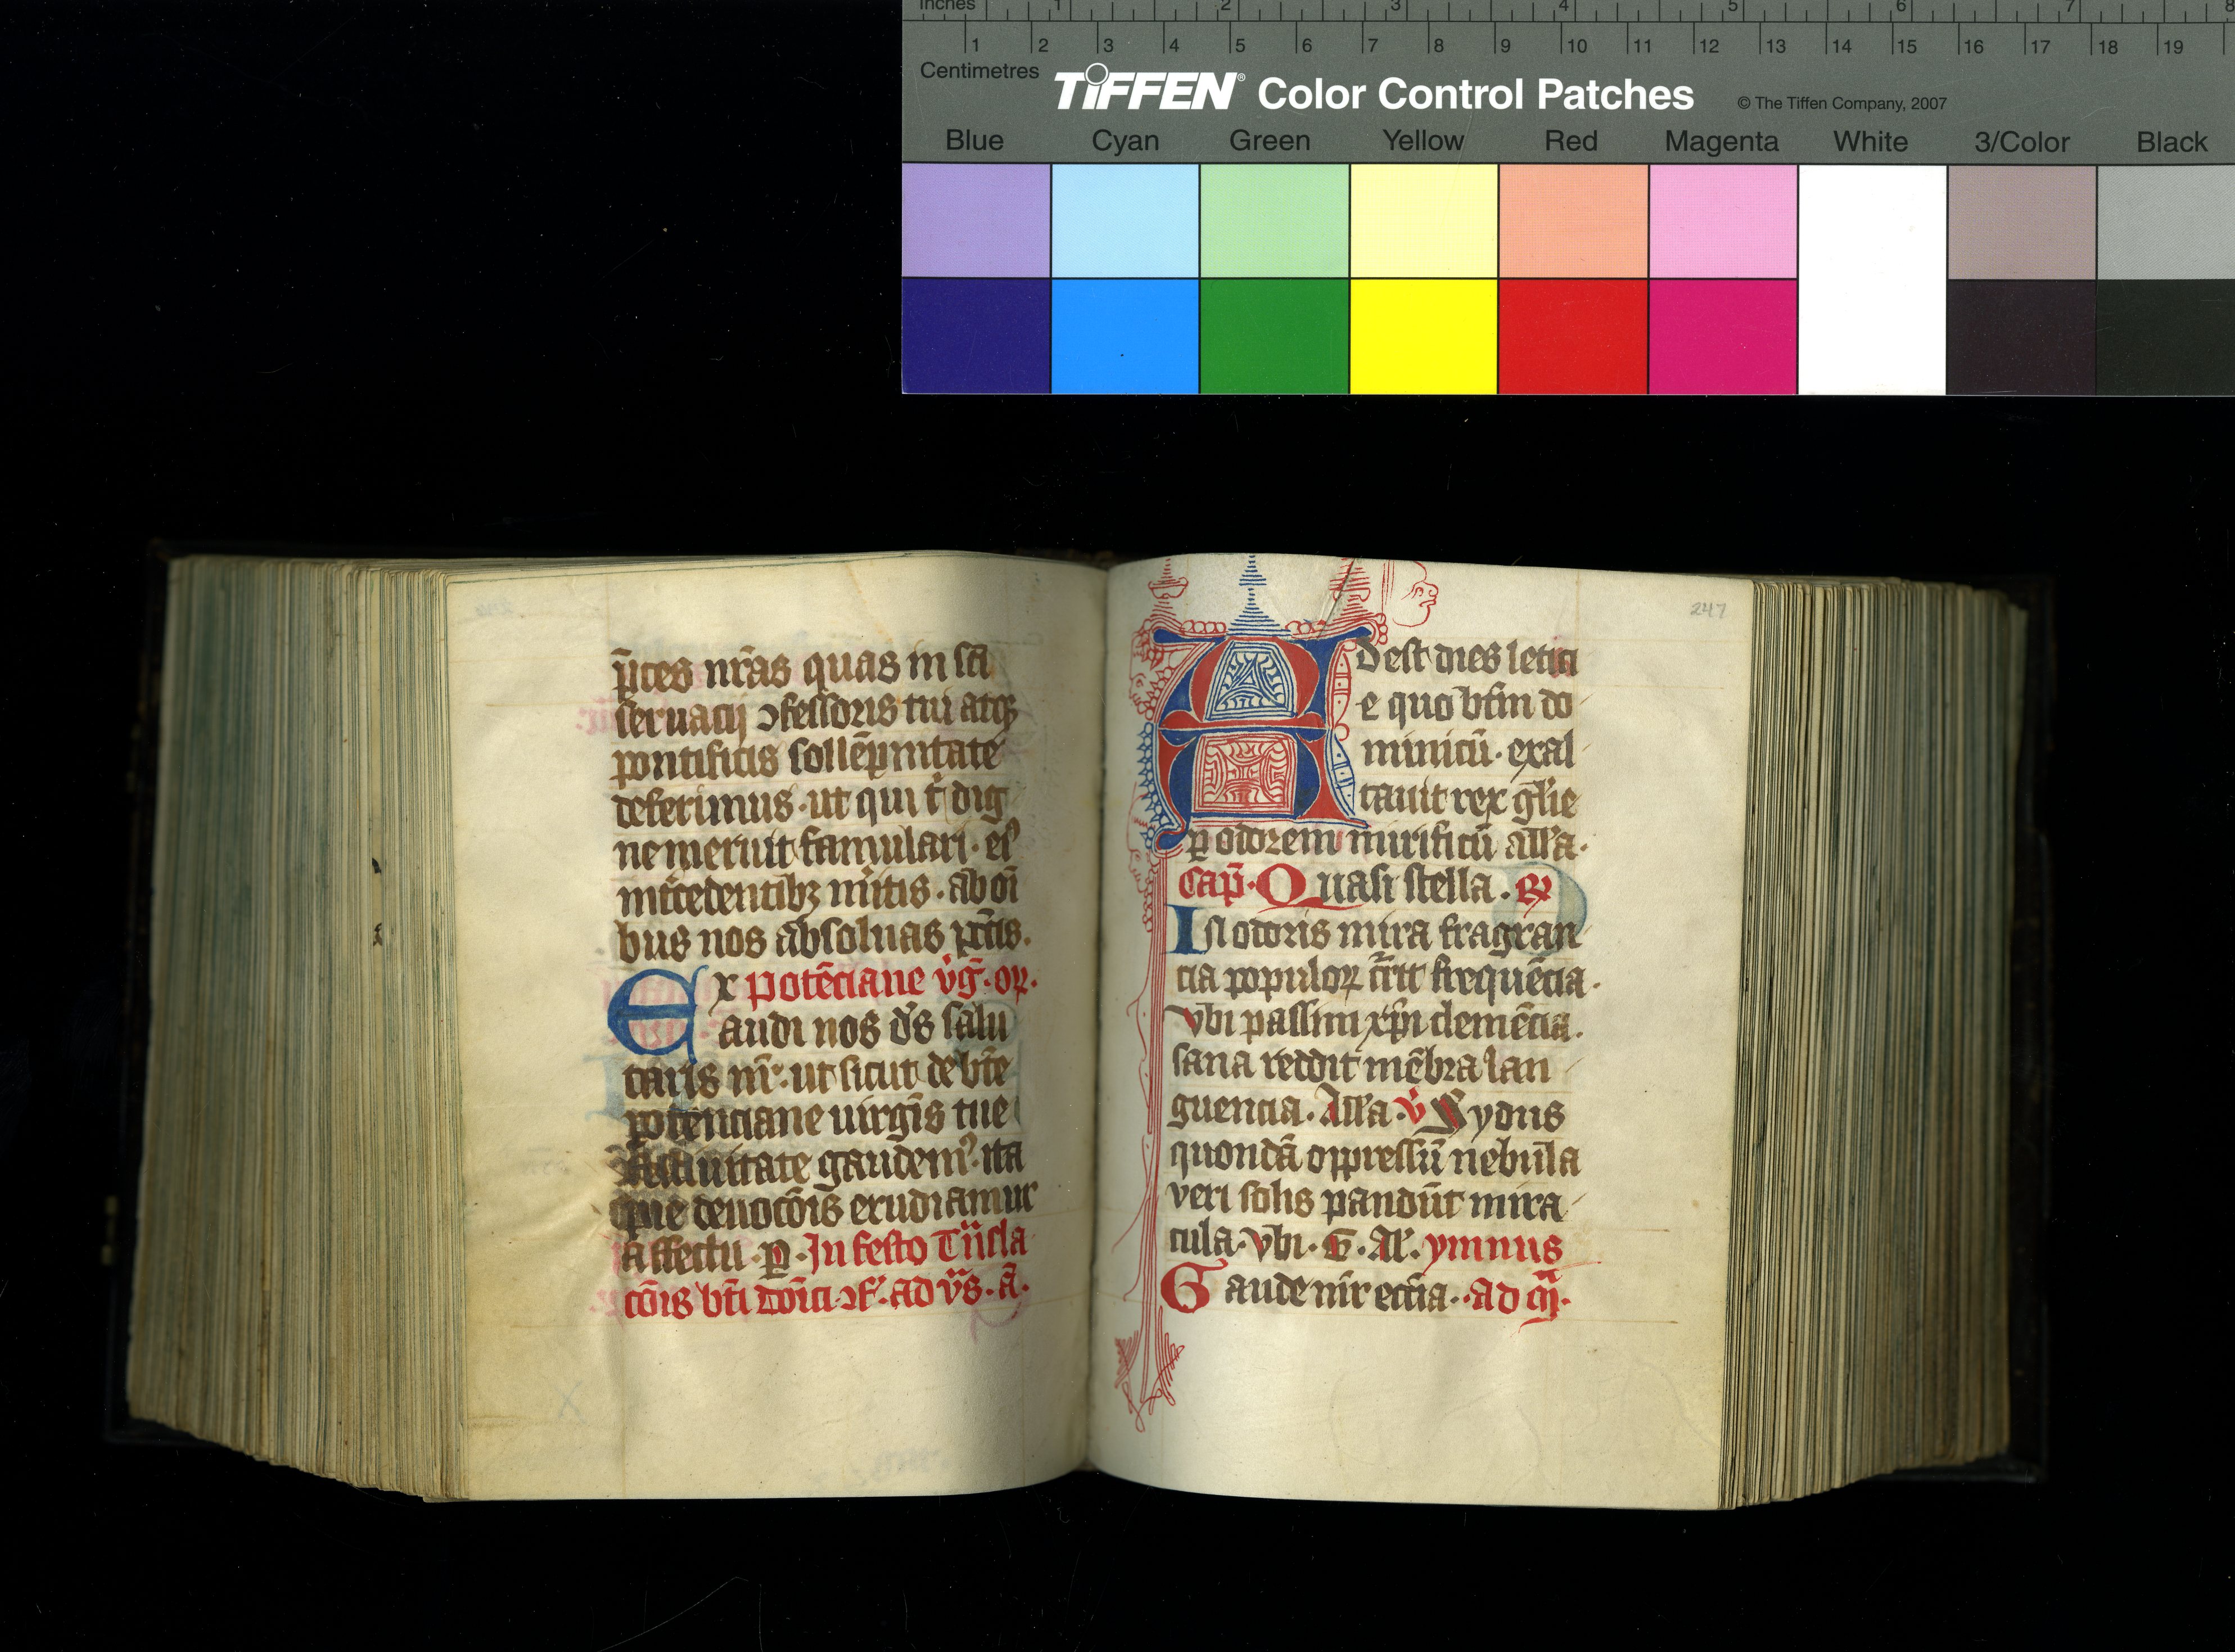 Inches 1 2 3 4 5 6 7 8
1 2 3 4 5 6 7 8 9 10 11 12 13 14 15 16 17 18 19
Centimetres
TIFFEN® Color Control Patches © The Tiffen Company, 2007
Blue Cyan Green Yellow Red Magenta White 3/Color Black
p̄ces nr̄as quas in sc̄i
seruacij ꝯfessoris tui atqꝫ
pontificis sollēpnitate
deferimus · ut qui t dig
ne meruit famulari · eiꝰ
int̄cedentibꝫ mitis · ab oī
bus nos absoluas pctīs.
Ex potēciane v̇g̅ · or̄.
audi nos ds̄ salu
taris nr̄ · ut sicut de btē
potenciane uirgis̄ tue
festiuitate gaudemꝰ · ita
pie deuocōis erudiamur
affectu · ꝑ · In festo Tn̄sla
cōis bti dōici ꝯf · ad vs̄ · a̅ ·
247
Adest dies letici
e quo btm̄ do
minicū · exal
tauit rex gl̄ie
ꝑ odorem mirificū all'a ·
Cap̄ · Quasi stella . ℟
Isti odoris mira fragran
cia populoꝝ cr̄it frequēcia ·
vbi passim xp̄i clemēcia .
sana reddit mēbra lan
guencia . All'a · v̇ Sydus
quondā oppressū nebula
veri solis pandūt mira
cula · vbi · G̅ . Al' . ymnus
Gaude mr̄ ecc̄ia · ad m̄ ·